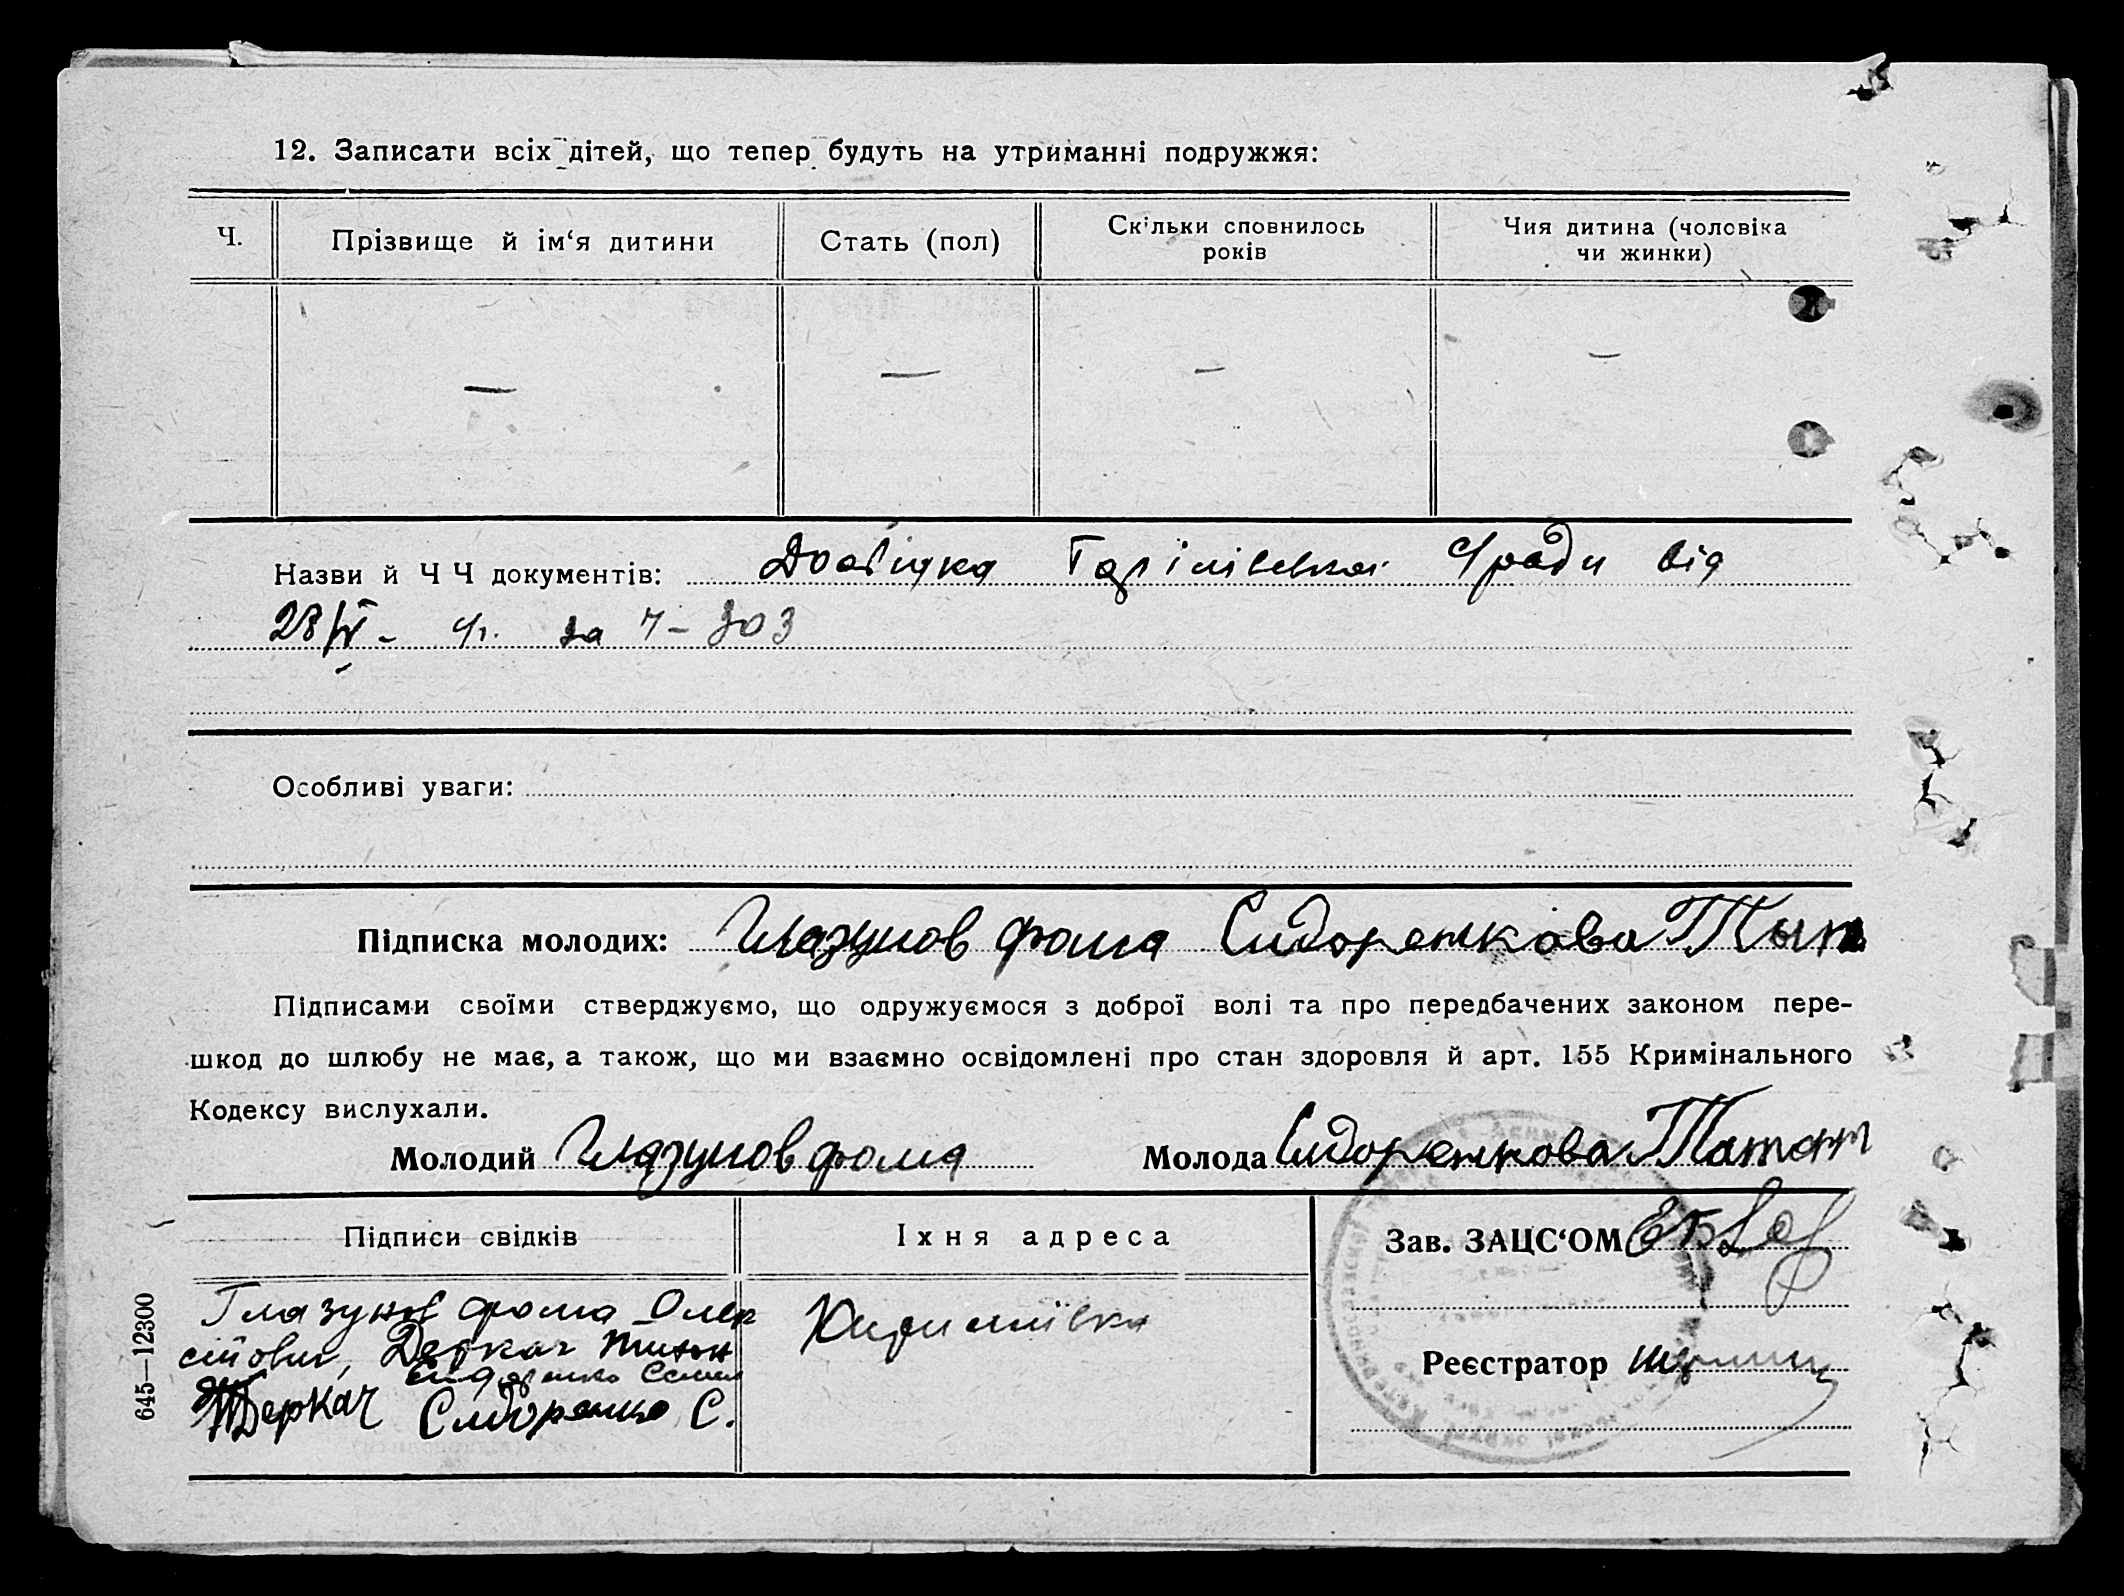 12. Записати всіх дітей, що тепер будуть на утриманні подружжя:
Ч.
Прізвище й ім‘я дитини
Стать (пол)
Скільки сповнилось
років
Чия дитина (чоловіка
чи жинки)
— — — —
Назви й Ч Ч документів: Довідка с/ради від
28/IV - с/р. за Ч - 303
Особливі уваги:
Підписка молодих: Глазунов Фома Сидоренкова
Підписами своїми стверджуємо, що одружуємося з доброї волі та про передбачених законом пере-
шкод до шлюбу не має, а також, що ми взаємно освідомлені про стан здоровля й арт. 155 Кримінального
Кодексу вислухали.
Молодий Глазунов Фома Молода Сидоренкова Татян
Підписи свідків
Їхня адреса
Зав. ЗАЦС‘ОМ
Глазунов Фома Олек
сійович, Деркач
Сидоренко Семен
Деркач Сидоренко С.
Кирилівка
Реєстратор
645—12300